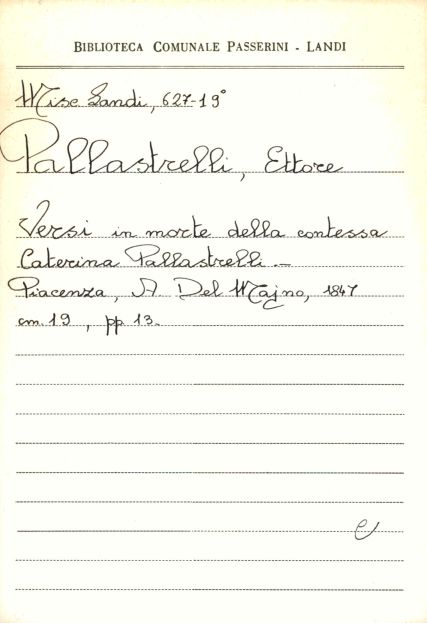 BIBLIOTECA COMUNALE PASSERINI - LANDI
Misc Landi, 627-19°
Pallastrelli, Ettore
Versi in morte della contessa
Caterina Pallastrelli. -
Piacenza, A Del Majno, 1847
cm. 19, pp 13.